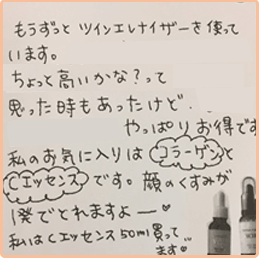 もうずっと ツインエレナイザーを使って
います。
ちょっと高いかな?って
思った時もあったけど.
やっぱりお得です
私のお気に入りは コラーゲン と
Cエッセンス です。顔のくすみが
1発でとれますよー♥
私はCエッセンス50ml買って
ます♥